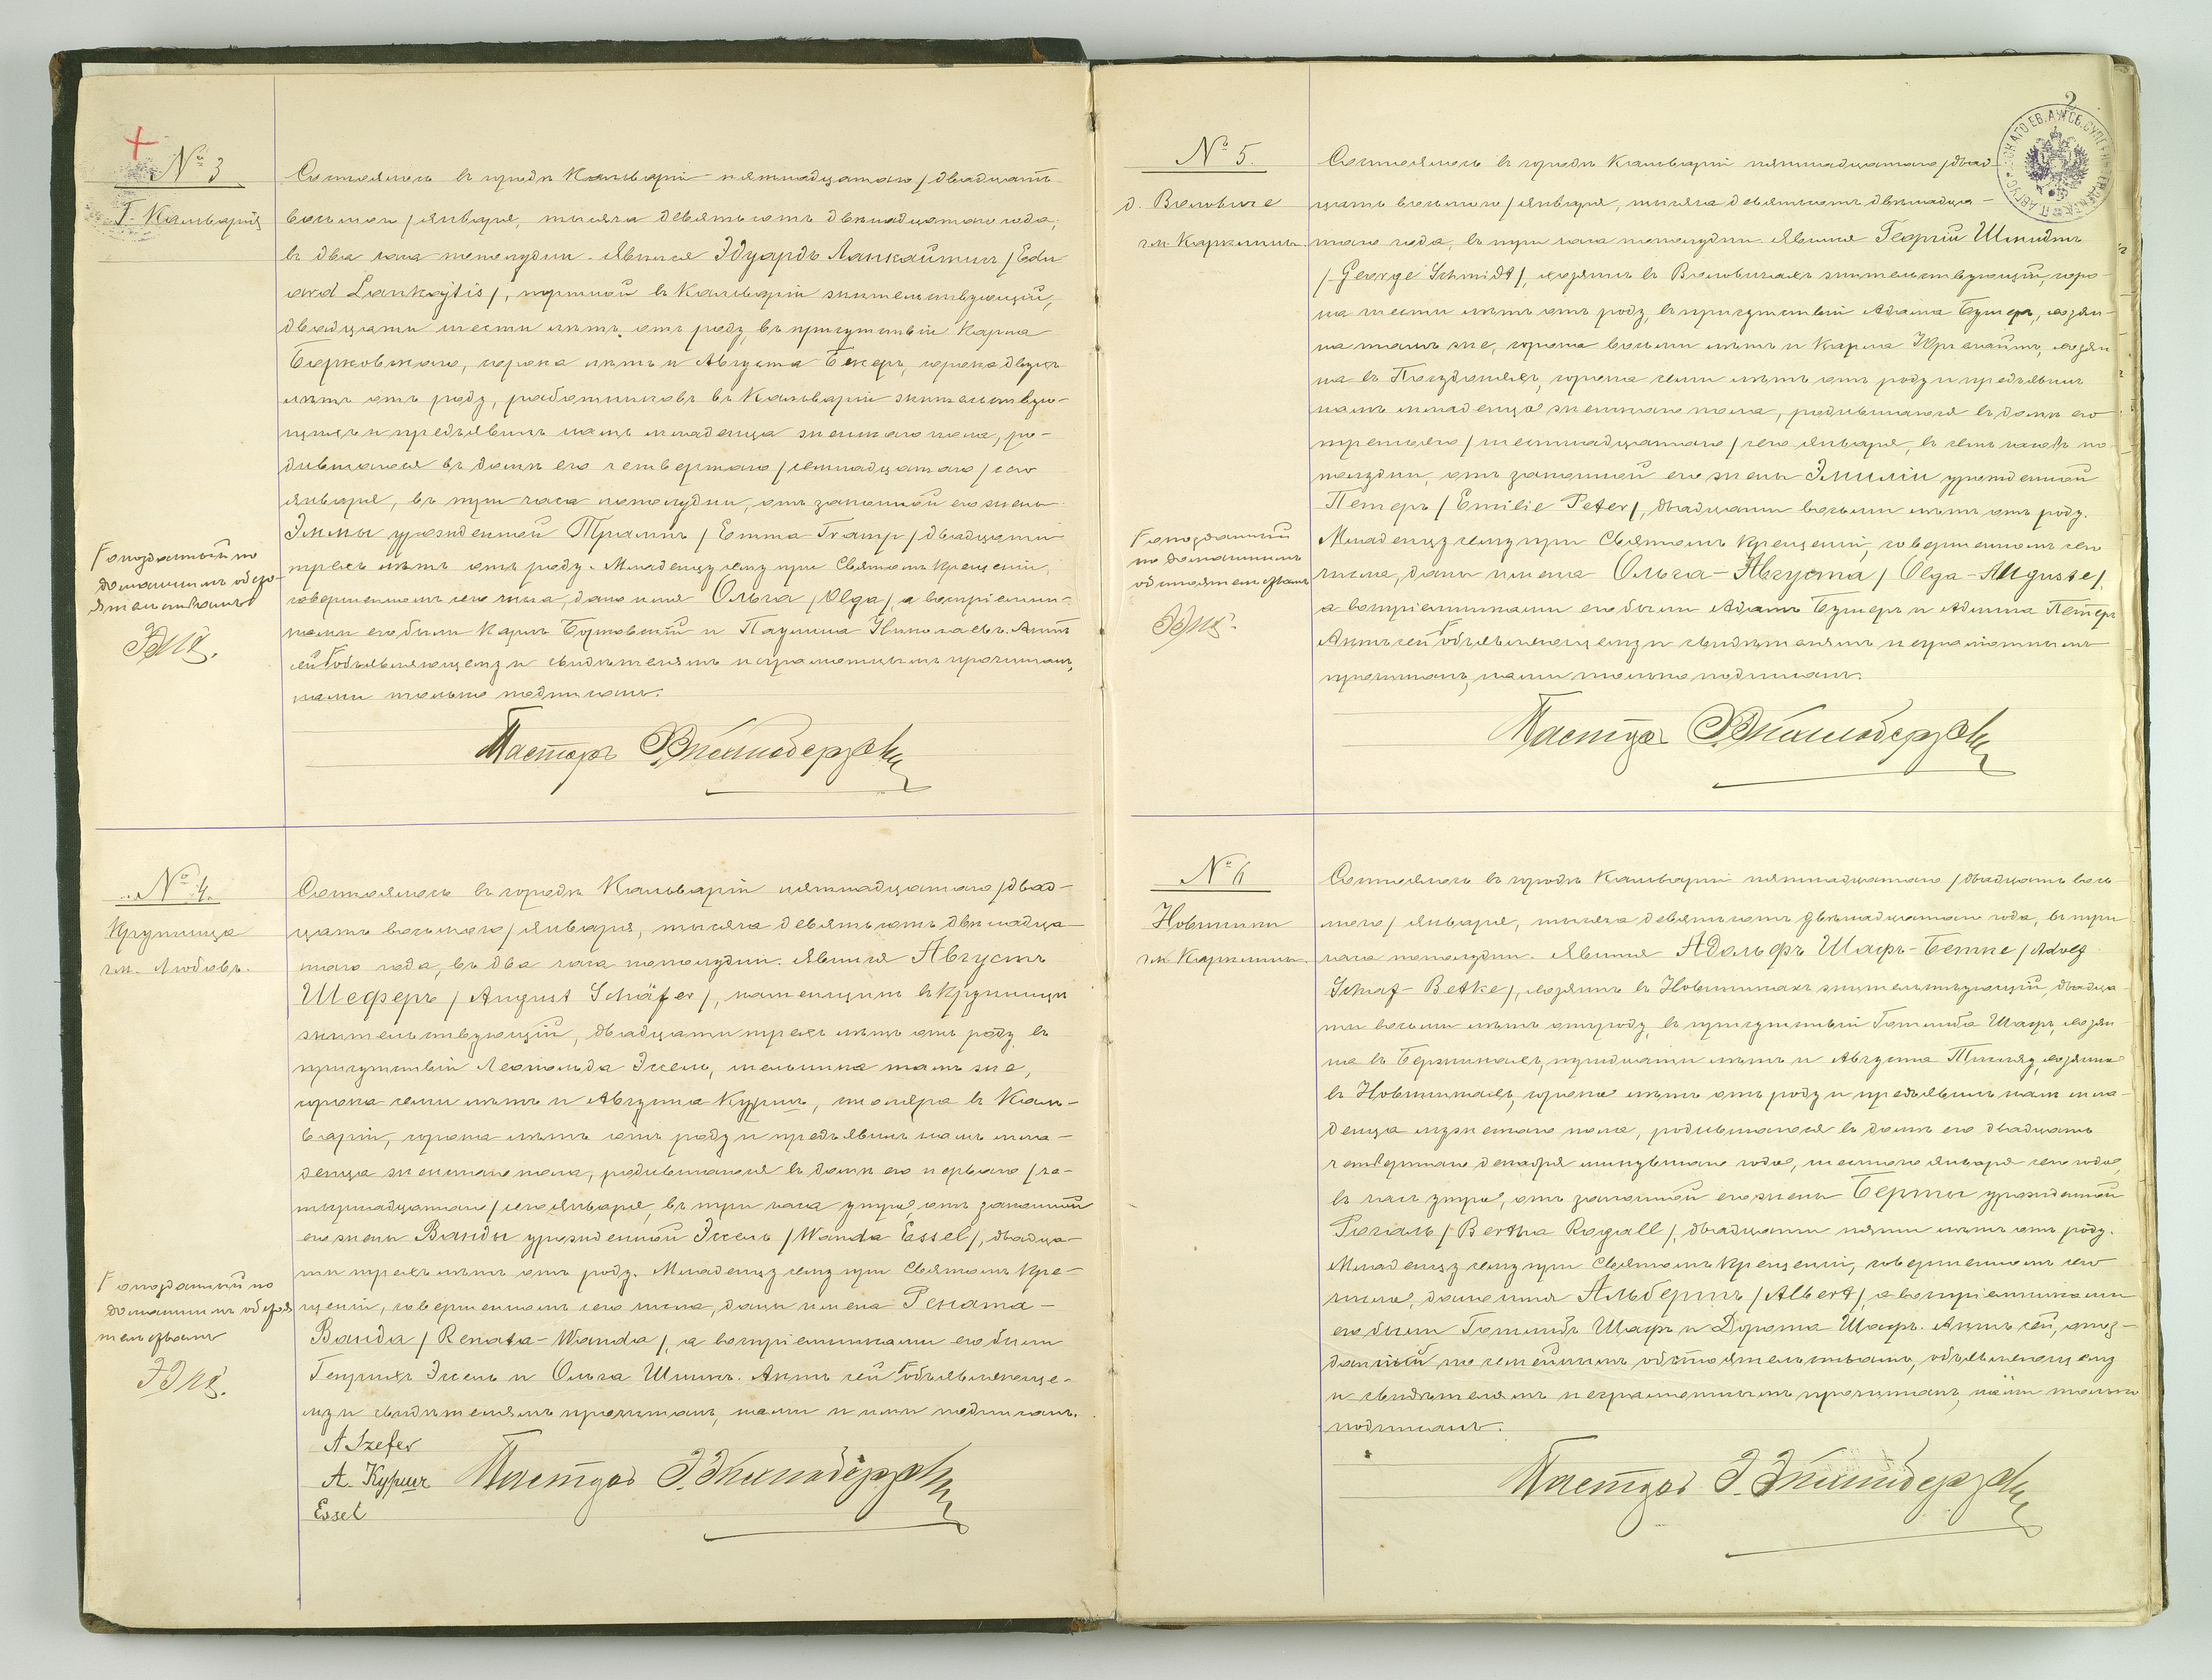 № 3
Г. Кальварія
Состоялось въ городѣ Кальваріи пятнадцатаго / двадцать
восьмого / января, тысяча девятьсотъ двѣнадцатаго года,
въ два часа пополудни. Явился Эдуардъ Ланкайтисъ / Edu
ard Lankajtis /, портной въ Кальваріи жительствующій,
двадцати шести лѣтъ отъ роду, въ присутствіи Карла
Борковскаго, сорока лѣтъ и Августа Бекеръ, сорока двухъ
лѣтъ отъ роду, работниковъ въ Кальваріи жительствую-
щихъ и предъявилъ намъ младенца женскаго пола, ро-
дившагося въ домѣ его четвертаго / семнадцатаго / сего
января, въ три часа пополудни, отъ законной его жены
Эммы урожденной Трампъ / Emma Tramp / двадцати
трехъ лѣтъ отъ роду. Младенцу сему при Святомъ Крещеніи,
совершенномъ сего числа, дано имя Ольга / Olga /, а воспріемни-
ками его были Карлъ Борковскій и Паулина Николаевъ. Актъ
сей Г объявляющему и свидѣтелямъ неграмотнымъ прочитанъ,
нами только подписанъ.
Г опозданный по
домашнимъ обсто-
ятельствамъ
Пасторъ
№ 4.
Крупница
гм. Любовъ.
Состоялось въ городѣ Кальваріи пятнадцатаго / двад-
цать восьмого / января, тысяча девятьсотъ двѣнадца-
таго года, въ два часа пополудни. Явился Августъ
Шеферъ / August Schäfer /, каменщикъ въ Крупницѣ
жительствующій, двадцати трехъ лѣтъ отъ роду въ
присутствіи Леопольда Эссель, мельника тамъ же,
сорока семи лѣтъ и Августа Куришъ, столяра въ Каль-
варіи, сорока лѣтъ отъ роду и предъявилъ намъ мла-
денца женскаго пола, родившагося въ домѣ его перваго / че-
тырнадцатаго / сего января, въ три часа утра, отъ законной
его жены Ванды урожденной Эссель / Wanda Essel /, двадца-
ти трехъ лѣтъ отъ роду. Младенцу сему при Святомъ Кре-
щеніи, совершенномъ сего числа, даны имена Рената-
Ванда / Renata-Wanda /, а воспріемниками его были
Генрихъ Эссель и Ольга Шмитъ. Актъ сей Г объявляюще-
му и свидѣтелямъ прочитанъ, нами и ими подписанъ.
Г опозданный по
домашнимъ обстоя
тельствамъ
A Szefer
А. Куришъ Пасторъ
Essel
2
№ 5.
д. Воловиче
гм. Карклины.
Состоялось въ городѣ Кальваріи пятнадцатаго / двад
цать восьмого / января, тысяча девятьсотъ двѣнадца-
таго года, въ три часа пополудни. Явился Георгій Шмидтъ
/ George Schmidt /, хозяинъ въ Воловичахъ жительствующій, соро-
ка шести лѣтъ отъ роду, въ присутствіи Адама Бушеръ, хозяи-
на тамъ же, сорока восьми лѣтъ и Карла хозяи
на въ сорока семи лѣтъ отъ роду и предъявилъ
намъ младенца женскаго пола, родившагося въ домѣ его
третьяго / шестнадцатаго / сего января, въ семь часовъ по
полудни, отъ законной его жены Эмиліи урожденной
Петеръ / Emilie Peter /, двадцати восьми лѣтъ отъ роду.
Младенцу сему при Святомъ Крещеніи, совершенномъ сего
числа, даны имена Ольга-Августа / Olga-Auguste /,
а воспріемниками его были Адамъ Бушеръ и Адина Петеръ
Актъ сей Г объявляющему и свидѣтелямъ неграмотнымъ
прочитанъ, нами только подписанъ.
Г опозданный
по домашнимъ
обстоятельствамъ
Пасторъ
№ 6
Новинки
гм. Карклины.
Состоялось въ городѣ Кальваріи пятнадцатаго / двадцать вось
мого / января, тысяча девятьсотъ двѣнадцатаго года, въ три
часа пополудни. Явился Адольфъ Шафъ-Бетке / Adolf
Schaf-Betke /, хозяинъ въ Новинкахъ жительствующій, двадца-
ти восьми лѣтъ отъ роду, въ присутствіи Готлиба Шафъ, хозяи
на въ тридцати лѣтъ и Августа хозяина
въ Новинкахъ, сорока лѣтъ отъ роду и предъявилъ намъ мла-
денца мужескаго пола, родившагося въ домѣ его двадцать
четвертаго декабря минувшаго года, шестого января сего года,
въ часъ утра, отъ законной его жены Берты урожденной
Рогаль / Bertha Rogall /, двадцати пяти лѣтъ отъ роду.
Младенцу сему при Святомъ Крещеніи, совершенномъ сего
числа, дано имя Альбертъ / Albert /, а воспріемниками
его были Готлибъ Шафъ и Дорота Шафъ. Актъ сей, опоз-
данный по семейнымъ обстоятельствамъ, объявляющему
и свидѣтелямъ неграмотнымъ прочитанъ, нами только
подписанъ.
Пасторъ